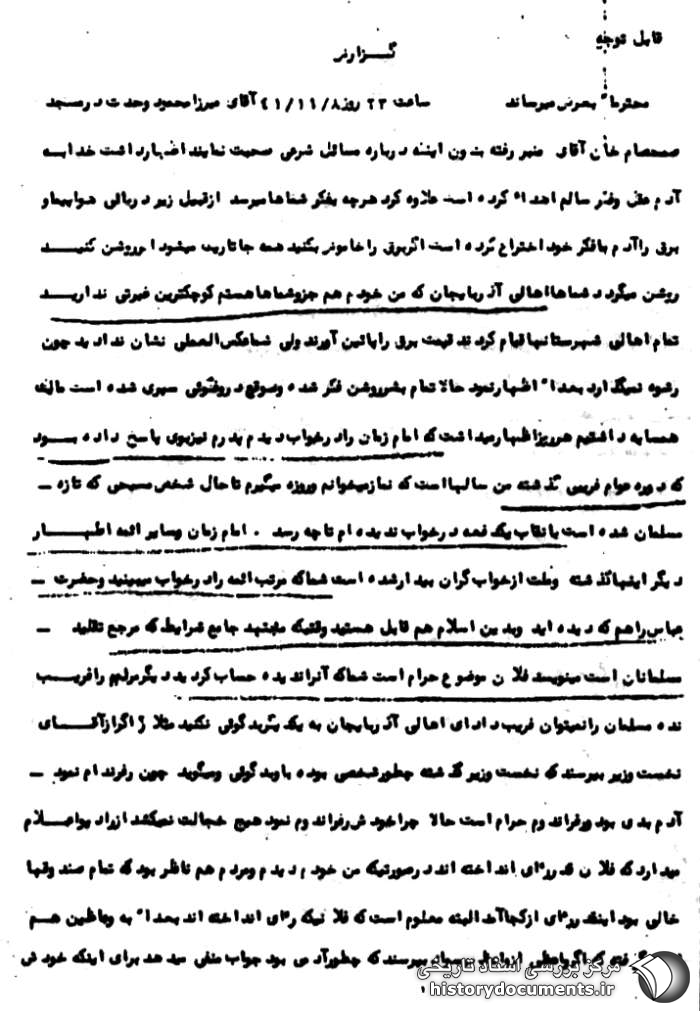 قابل توجه
گـزارش
محترما" بعرض میرساند ساعت ۲۳ روز ۴۱/۱۱/۸ آقای میرزا محمود وحدت در مسجد
صمصام خان آقای منبر رفته بدون اینکه درباره مسائل شرعی صحبت نمایند اظهار داشت خدا به
آدم عقل و فکر سالم اهدا" کرده است علاوه کرد هرچه بفکر شماها میرسد از قبیل زیر دریائی هواپیما و
برق را آدم با فکر خود اختراع کرده است اگر برق را خاموش بکنید همه جا تاریک میشود اگر روشن کنیــد
روشن میگردد شماها اهالی آذربایجان که من خودم هم جزو شماها هستم کوچکترین غیرتی نداریــد
تمام اهالی شهرستانها قیام کردند قیمت برق را پائین آورند ولی شما عکس العملی نشان ندادید چون
رشوه نمیگذارد بعدا" اظهار نمود حالا تمام بشر روشن فکر شده و موقع دروغگوئی سپری شده است ما یک
همسایه داشتیم هر روز اظهار میداشت که امام زمان را در خواب دیدم پدرم نیز بوی پاسخ داده بــود
که دوره عوام فریبی گذشته من سالها است که نماز میخوانم و روزه میگیرم تا حال شخص مسیحی که تازه –
مسلمان شده است با نقاب یک دفعه در خواب ندیده ام تا چه رسد . امام زمان و سایر ائمه اظهــار
دیگر اینها گذشته وملت از خواب گران بیدار شده است شما که مرتب ائمه را در خواب میبینید و حضرت –
عباس را هم که دیده اید وبدین اسلام هم قابل هستید وقتیکه مجتهد جامع شرایط که مرجع تقلید –
مسلمانان است مینویسد فلان موضوع حرام است شما که آنرا ندیده حساب کردید دیگر مردم را فریــب
نده مسلمان را نمیتوان فریب داد ای اهالی آذربایجان به یکدیگر بدگوئی نکنید مثلا اگر از آقــای
نخست وزیر بپرسند که نخست وزیر گذشته چطور شخصی بوده با و بدگوئی ومیگوید چون رفرندام نمود –
آدم بدی بود ورفراندوم حرام است حالا چرا خودش رفراندوم نمود هیچ خجالت نمیکشد از رادیو اعــلام
میدارد که فلان قدر رأی انداخته اند در صورتیکه من خودم دیدم ومردم هم ناظر بود که تمام صندوقها
خالی بود اینقدر رأی از کجا آمد البته معلوم است که فلانیکه رأی انداخته اند بعدا" به وعاظین هــم
گرفته که اگر واعظی بپرسند که چطور آدمی بود جواب منفی میدهد برای اینکه خودش
مرکز بررسی اسناد تاریخی
historydocuments.ir